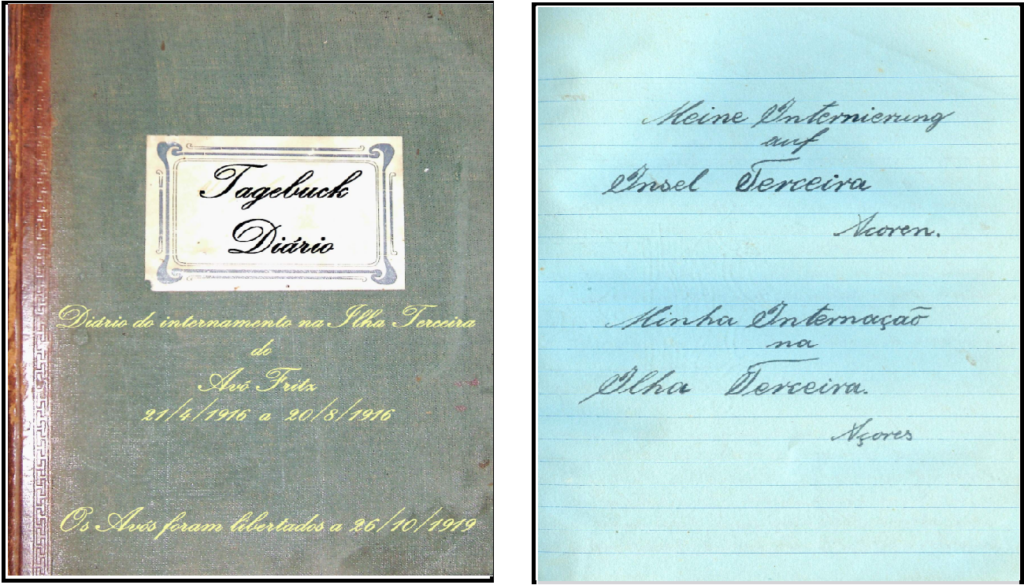 Tagebuck
Diário
Diário do internamento na Ilha Terceira
do
Avô Fritz
21/4/1916 a 20/8/1916
Os Avós foram libertados a 26/10/1919
Meine Internierung
auf
Insel Terceira
Acoren.
Minha Internação
na
Ilha Terceira.
Açores